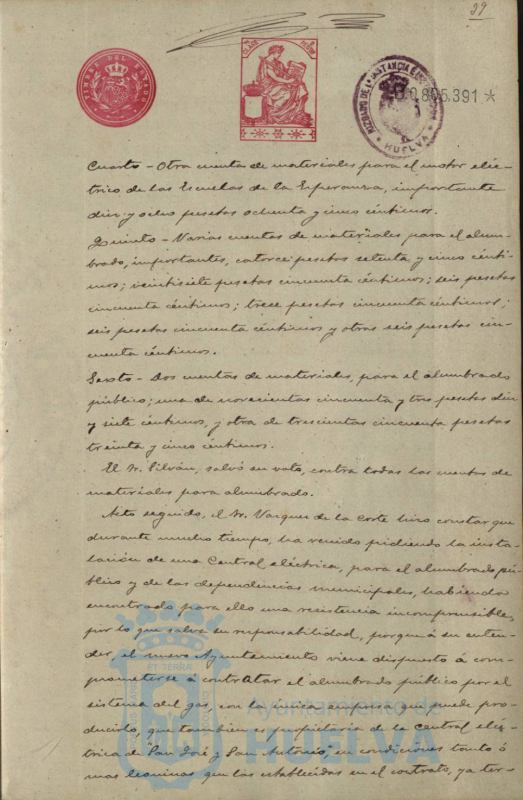 29
TIMBRE DEL ESTADO
CLASE
JUZGADO DE 1ª INSTANCIA
HUELVA
0.805.391 *
Cuarto - Otra cuenta de materiales para el motor eléc-
trico de las Escuelas de la Esperanza, importante
diez y ocho pesetas ochenta y cinco céntimos.
Quinto - Varias cuentas de materiales para el alum-
brado, importantes, catorce pesetas setenta y cinco cénti-
mos; veintisiete pesetas cincuenta céntimos; seis pesetas
cincuenta céntimos; trece pesetas cincuenta céntimos;
seis pesetas cincuenta céntimos y otras seis pesetas cin-
cuenta céntimos.
Sexto - Dos cuentas de materiales, para el alumbrado
público; una de novecientas cincuenta y tres pesetas diez
y siete céntimos, y otra de trescientas cincuenta pesetas
treinta y cinco céntimos.
El Sr. Silván, salvó su voto, contra todas las cuentas de
materiales para alumbrado.
Acto seguido, el Sr. Vazquez de la Corte hizo constar que
durante mucho tiempo, ha venido pidiendo la insta-
lación de una Central eléctrica, para el alumbrado pú-
blico y de las dependencias municipales, habiendo
encontrado para ello una resistencia incomprensible,
por lo que salva su responsabilidad, porque á su enten-
der, el nuevo Ayuntamiento viene dispuesto á com-
prometerse á contratar el alumbrado público por el
sistema del gas, con la única empresa que puede pro-
ducirlo, que tambien es propietaria de la Central eléc-
trica de "San José y San Antonio", en condiciones tanto ó
mas leoninas que las establecidas en el contrato, ya ter-
Ayuntamiento de
HUELVA
ET TERRÆ